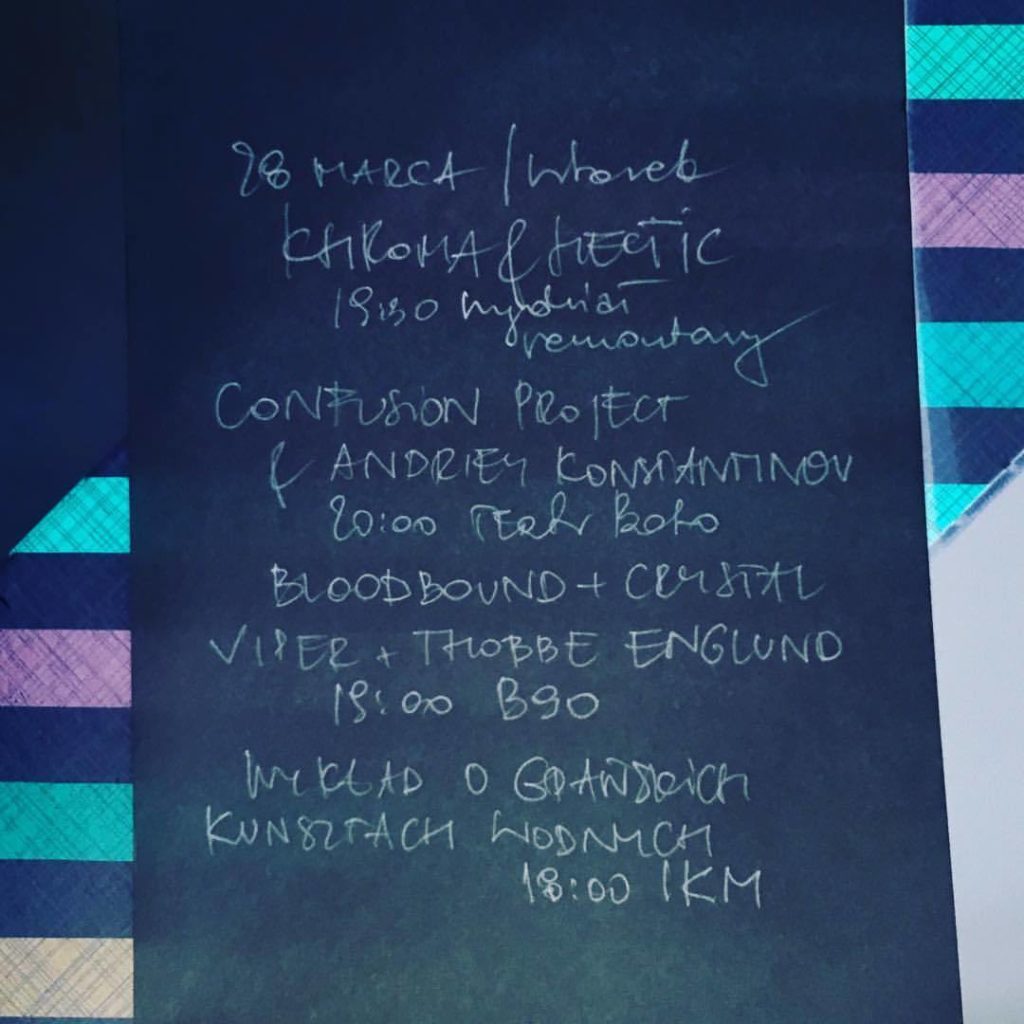 28 MARCA / wtorek
KHROMA & HECTIC
19:30 wydział
remontowy
CONFUSION PROJECT
& ANDRIEY KONSTANTINOV
20:00 TEATR BOTO
BLOODBOUND + CRYSTAL
VIPER + THOBBE ENGLUND
19:00 B90
WYKŁAD O GDAŃSKICH
KUNSZTACH WODNYCH
18:00 IKM